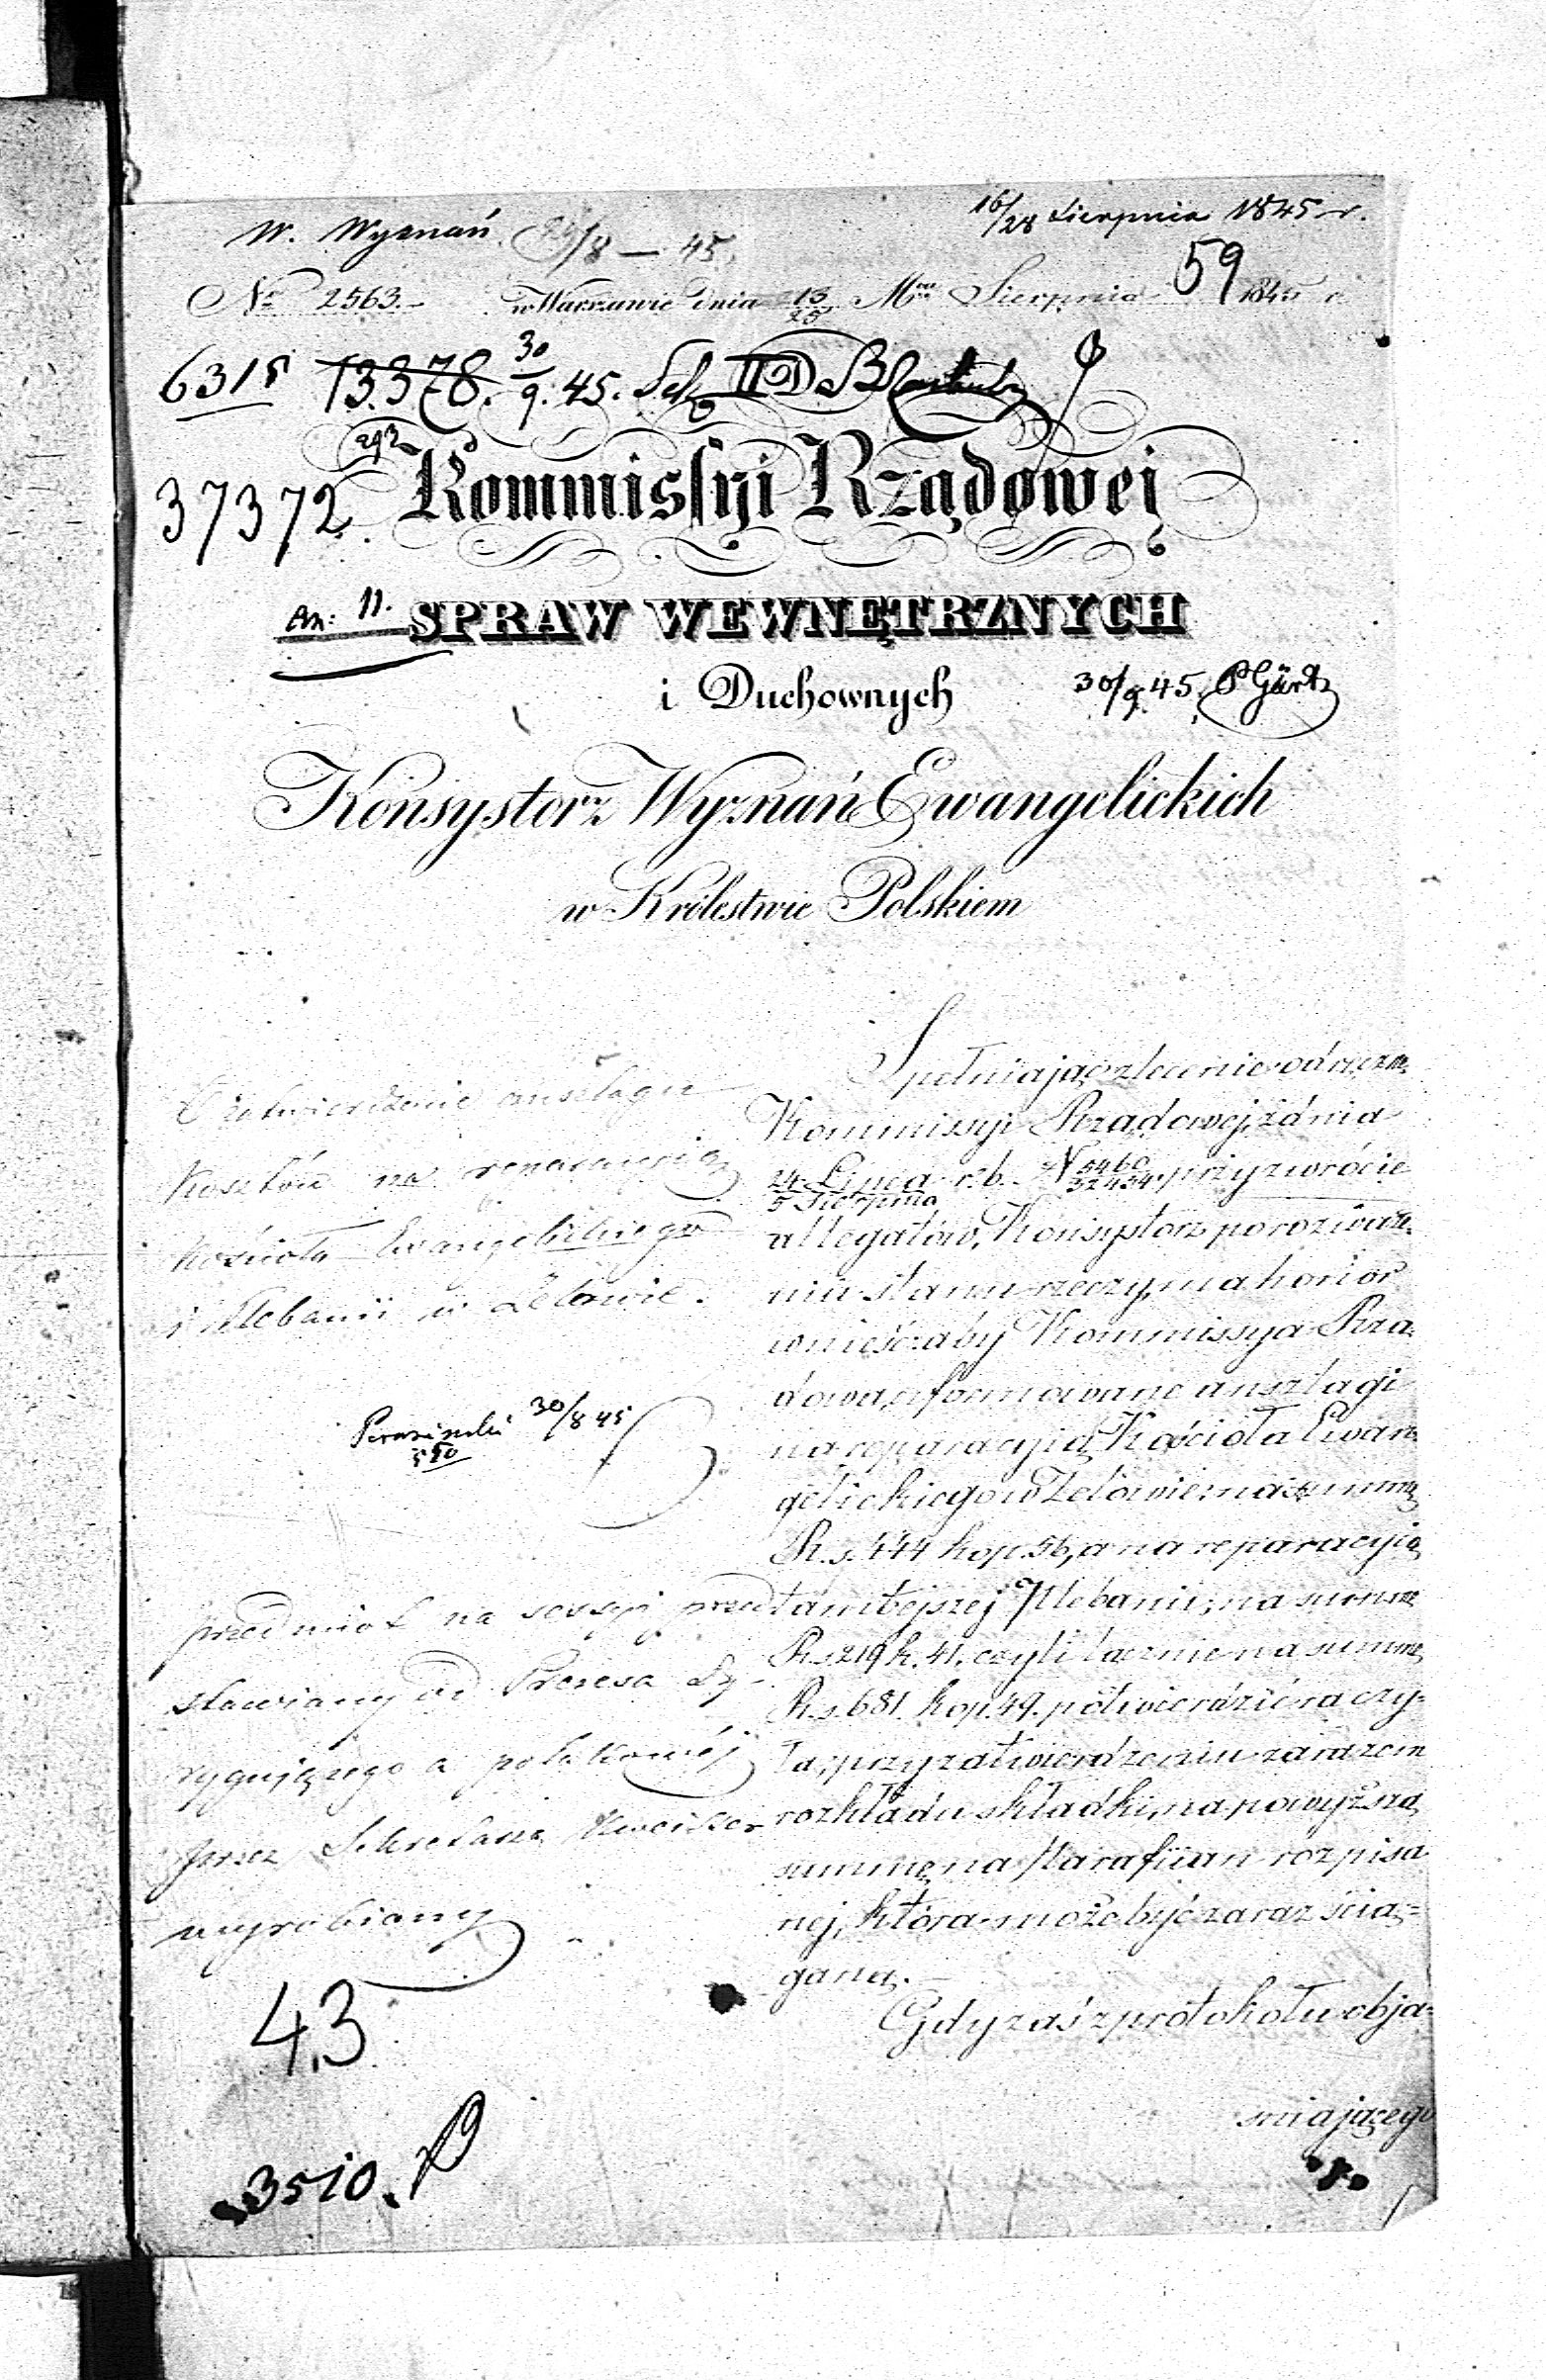 16/28 Sierpnia 1845 r.
W. Wyznań. /8 — 45.
59
Nr 2563.- w Warszawie dnia 13/25 Mca Sierpnia 1845 r
6315 13.378. 30/9. 45.
37372.
Kommissyi Rządowej
An: 11. SPRAW WEWNĘTRZNYCH
i Duchownych
30/9.45.
Konsystorz Wyznań Ewangelickich
w Królestwie Polskiem
O zatwierdzenie anszlagu
Kosztów na
Kościoła Ewangelickiego
i Plebanii w Zelowie.
30/8 45
przedmiot na sessyi przed
stawiany od Prezesa Dy-
rygującego a
przez Sekretarza
wyrobiony
43
3510.
Spełniając zlecenie odnośne
Kommissyi Rządowej, z dnia
24 Lipca/5 Sierpnia r. b. N 5460/32434. przy zwrócie
allegatów, Konsystorz po rozważe-
niu stanu rzeczy, ma honor
wnieść: aby Kommissya Rzą-
dowa, uformowane anszlagi
na reparacyją Kościoła Ewan-
gelickiego w Zelowie: na summę
R. s. 444 kop. 56, a na reparacyją
tamtejszej Plebanii; na summę
R. s. 219 k. 41. czyli łącznie na summę
R. s. 681. kop. 49. potwierdzić raczy-
ła, przy zatwierdzeniu zarazem
rozkładu składki, na powyższą
summę na Parafiian rozpisa
nej, która może być zaraz ścią-
ganą.-
Gdy zaś z protokołu obja-
śniającego